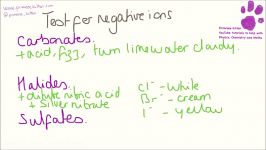 Test for negative ions
Carbonates.
+ acid, fizz, turn limewater cloudy.
Halides
+ dilute nitric acid
+ silver nitrate
Cl⁻ - white
Br⁻ - cream
I⁻ - yellow
Sulfates.